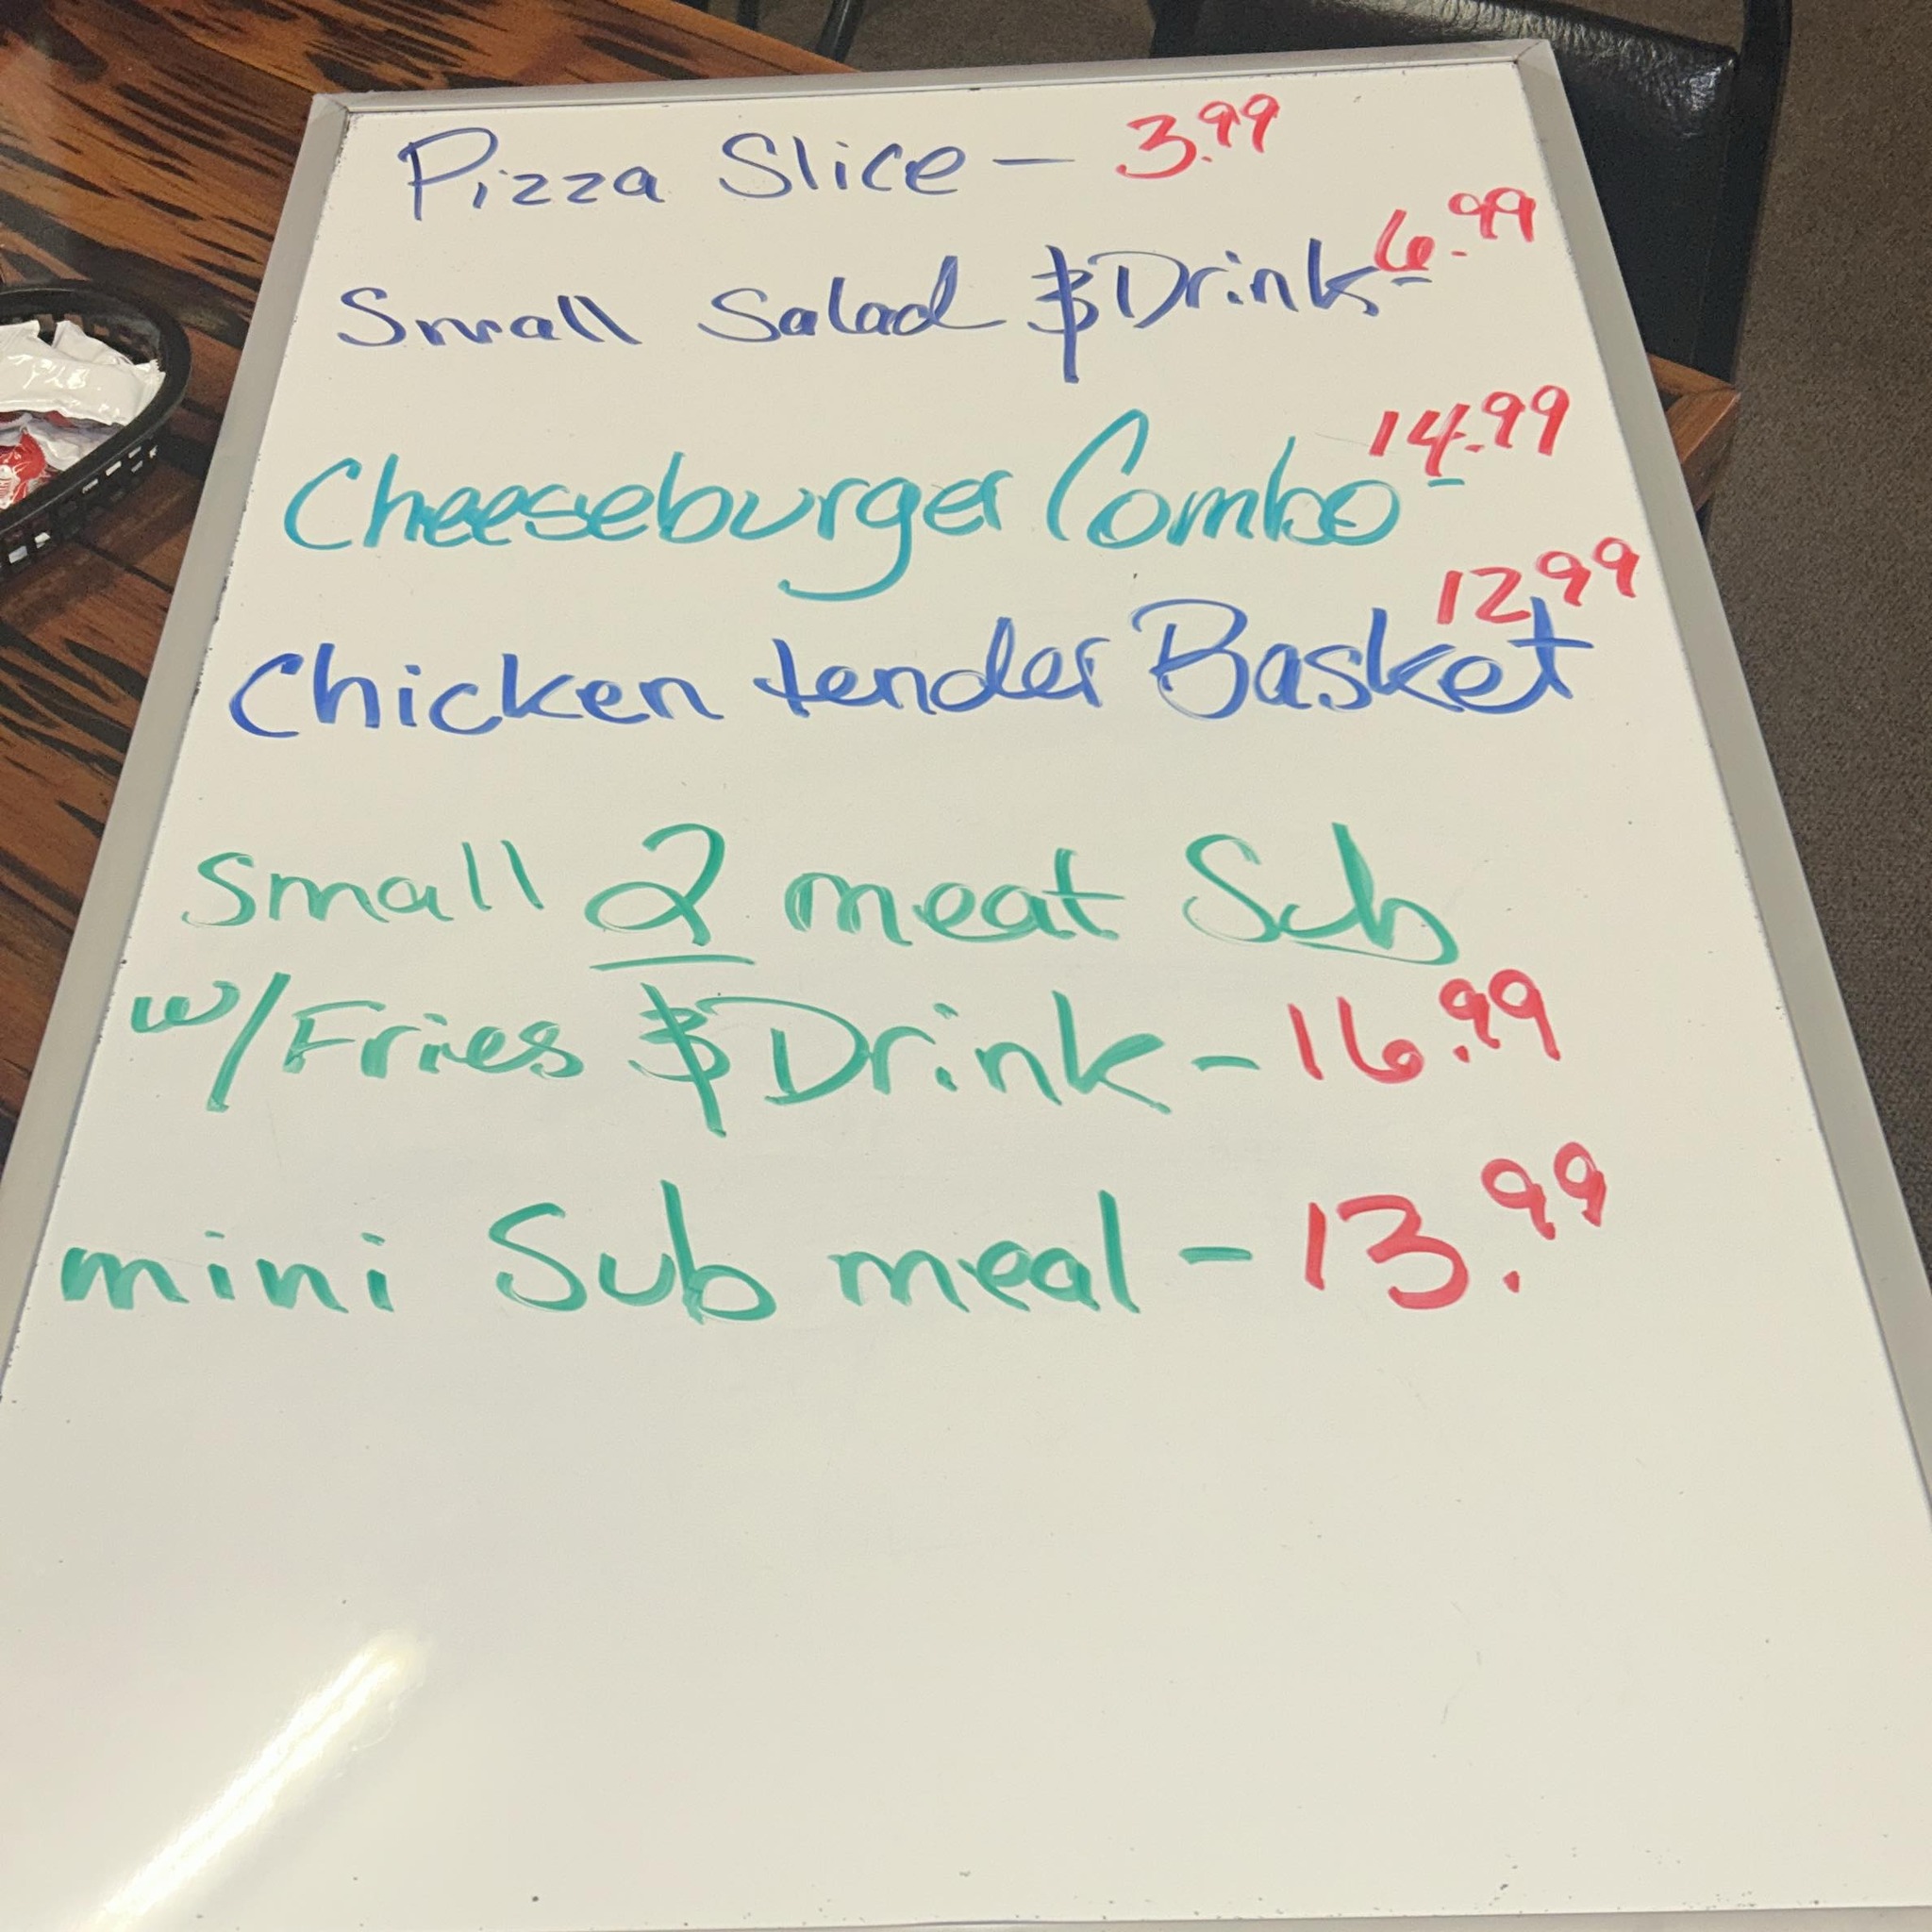 Pizza Slice - 3.99
Small Salad & Drink 6.99
Cheeseburger Combo 14.99
Chicken tender Basket 12.99
Small 2 meat Sub
w/Fries & Drink - 16.99
mini Sub meal - 13.99